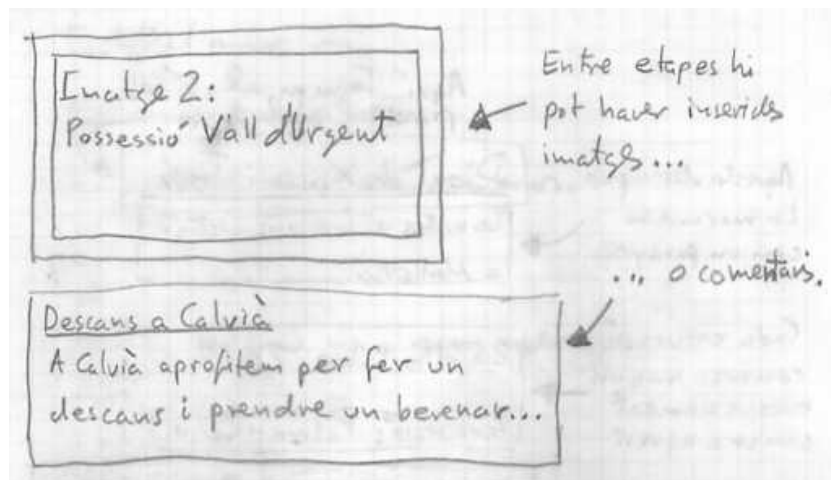 Imatge 2:
Possessió Vall d'Urgent
Entre etapes hi
pot haver inserides
imatges...
... o comentaris.
Descans a Calvià
A Calvià aprofitem per fer un
descans i prendre un berenar...